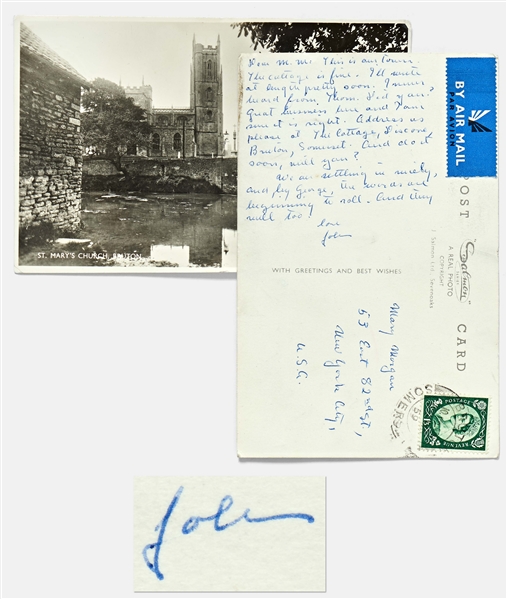 ST. MARY'S CHURCH, BRUTON
Dear M. M. This is our town.
The cottage is fine. I'll write
at length pretty soon. I never
heard from Thom. Did you?
Great business here and I am
sure it is right. Address us
please at The Cottage, Discove,
Bruton, Somerset. And do it
soon, will you?
We are settling in nicely,
and by George, the words are
beginning to roll. And they
will too.
love
John
WITH GREETINGS AND BEST WISHES
Mary Morgan
53 East 82nd St,
New York City,
U.S.A.
BY AIR MAIL
PAR AVION
POST CARD
"Salmon"
SERIES
A REAL PHOTO
COPYRIGHT
J. Salmon Ltd. Sevenoaks
SOMERSET
59
POSTAGE
REVENUE
John